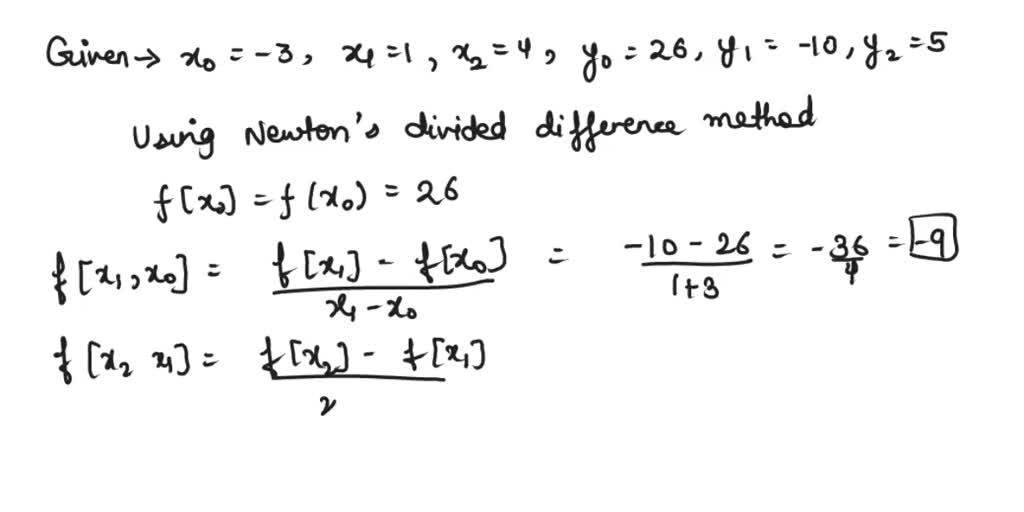 Given → x₀ = -3, x₁ = 1, x₂ = 4, y₀ = 26, y₁ = -10, y₂ = 5
Using Newton's divided difference method
f[x₀] = f(x₀) = 26
f[x₁, x₀] = (f[x₁] - f[x₀]) / (x₁ - x₀) = (-10 - 26) / (1+3) = -36/4 = -9
f[x₂ x₁] = (f[x₂] - f[x₁]) / x